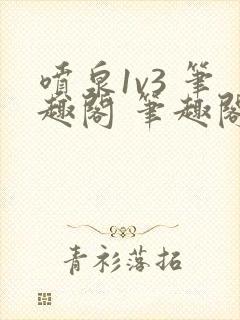 噴泉1v3 筆
趣閣 筆趣閣
青衫落拓